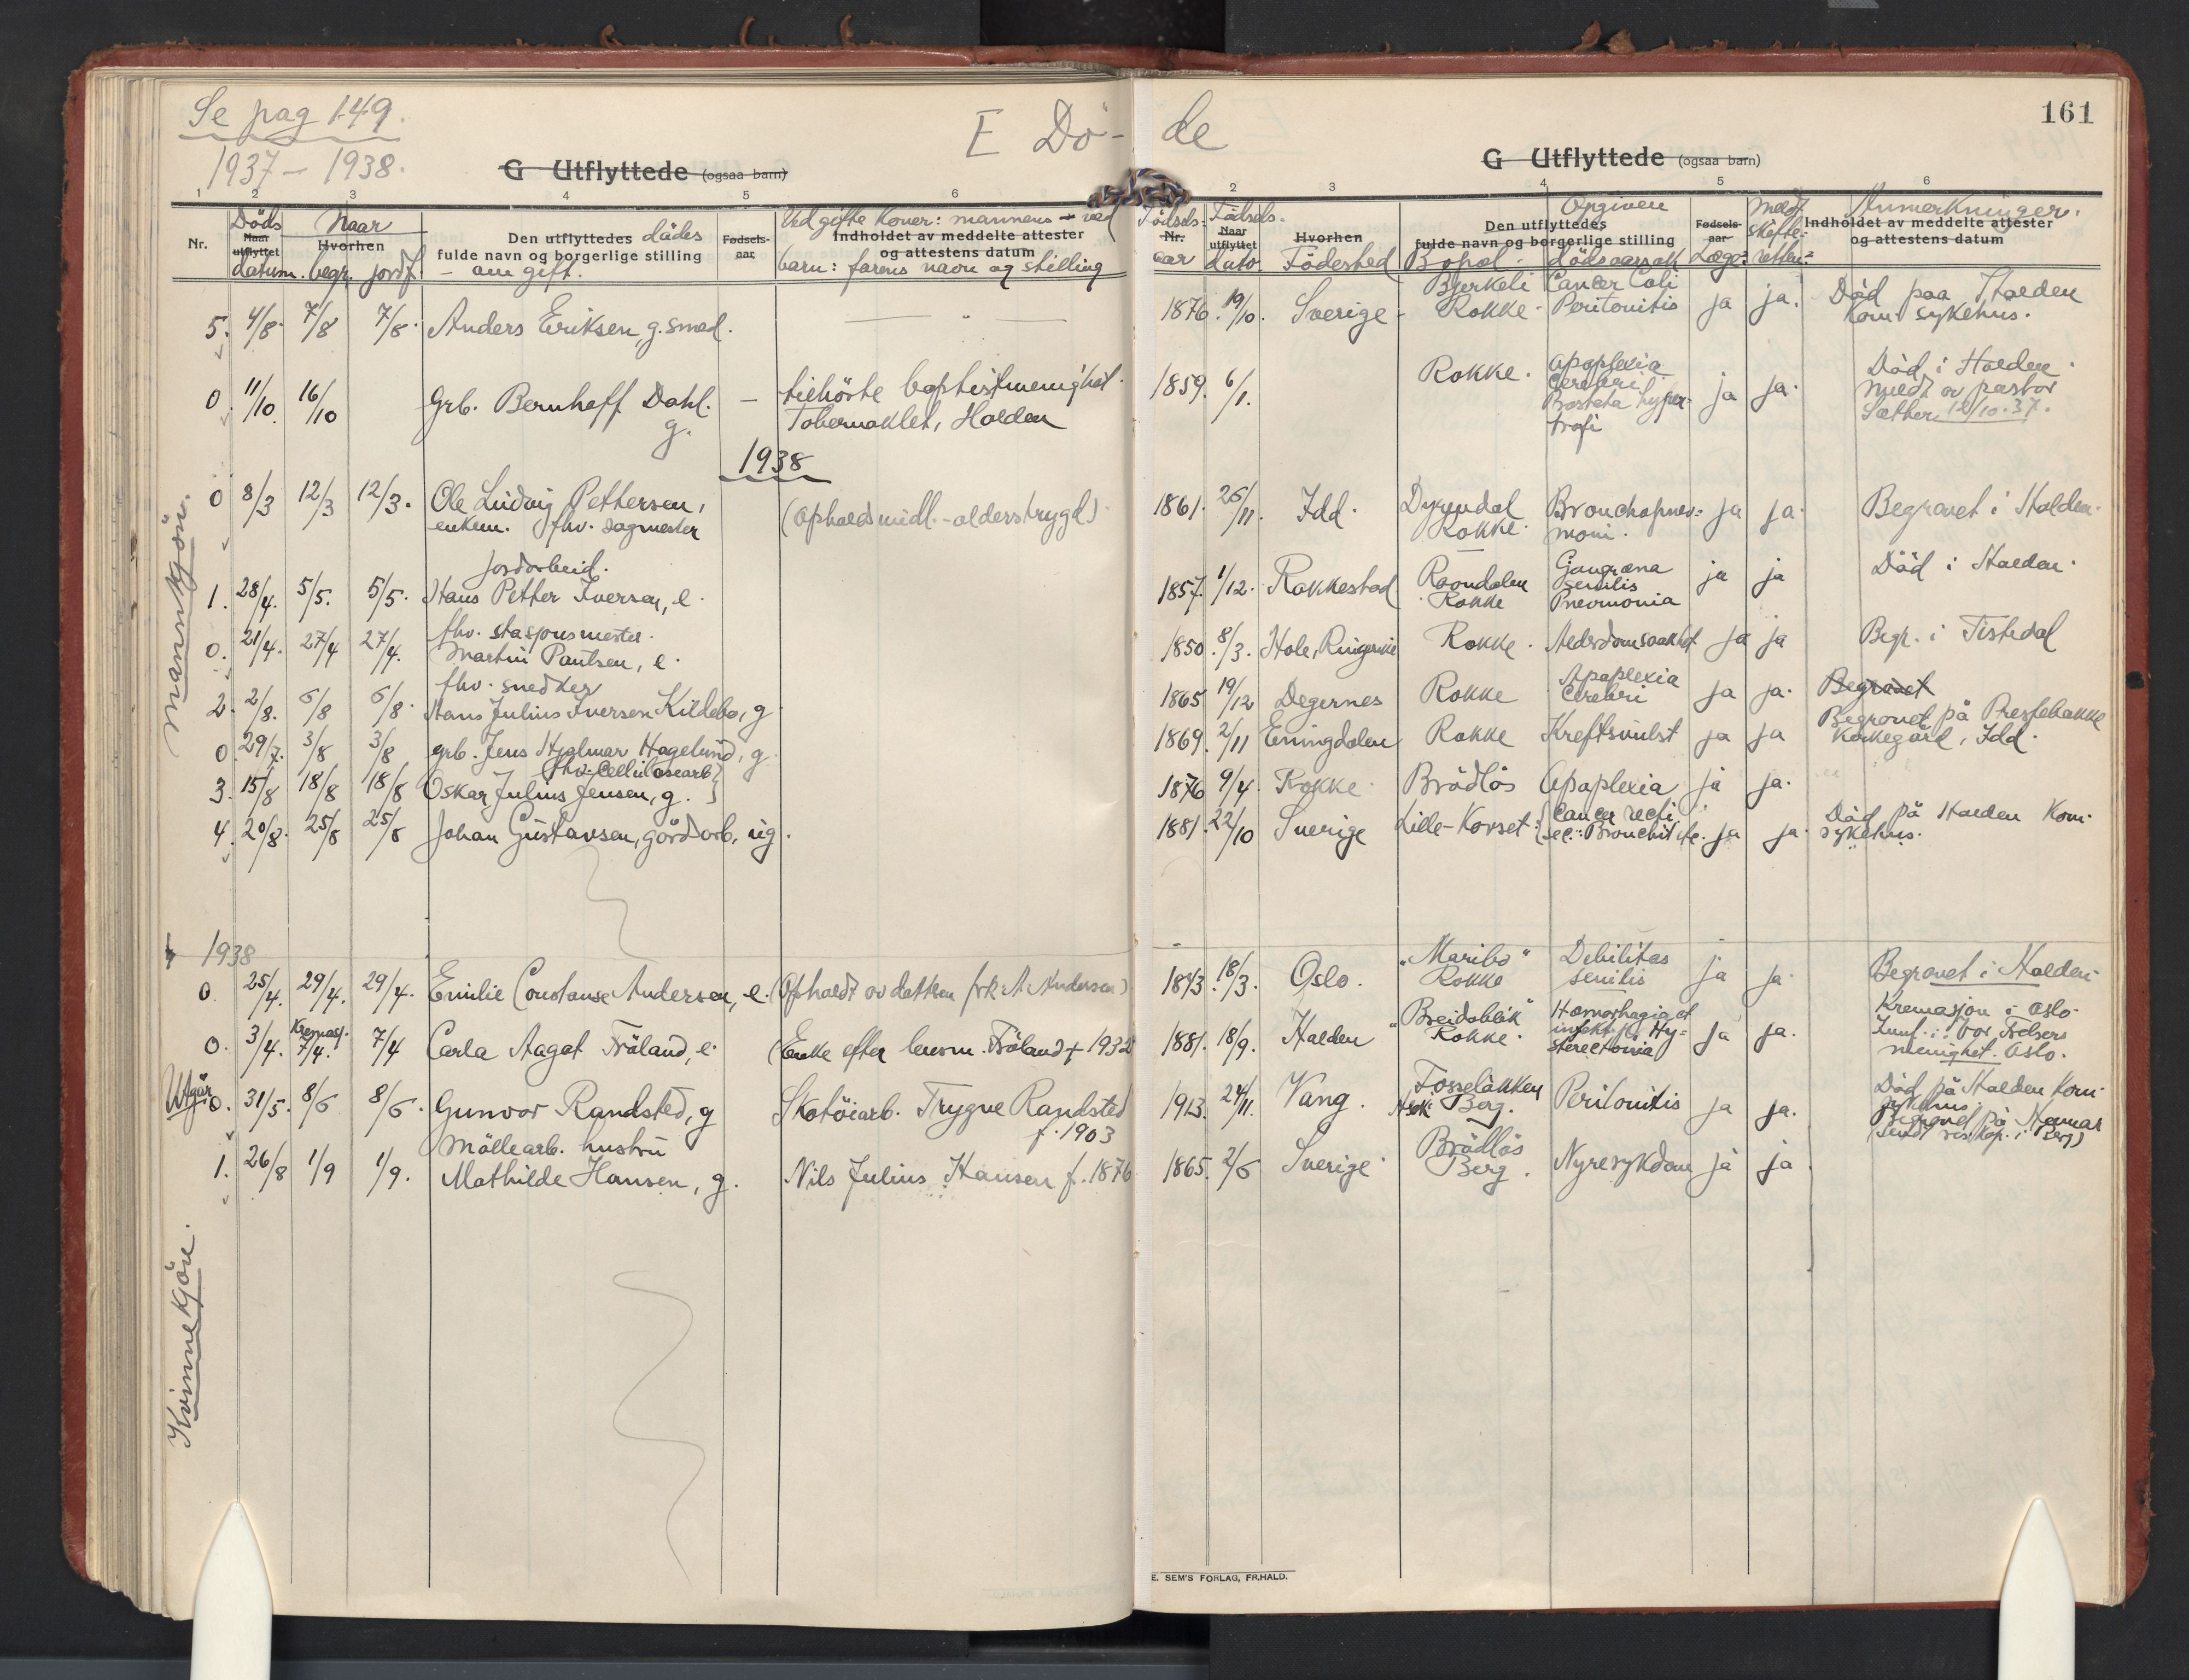 Se pag 149.
1937 – 1938.
E Dö-
G Utflyttede (ogsaa barn)
1 2 3 4 5 6
Nr.
Döds
Naar utflyttet
datum.
Naar
Hvorhen
begr. jordf.
Den utflyttedes dödes
fulde navn og borgerlige stilling
– om gift.
Fødsels-
aar
Ved gifte koner: mannens – ved
Indholdet av meddelte attester
og attestens datum
barn: farens navn og stilling
Mannkjön.
5. 4/8. 7/8 7/8. Anders Eriksen, g. smed.
0. 11/10. 16/10 Grb. Bernhoff Dahl. g. – tilhörte baptistmenighet.
Tabernaklet, Halden
1938
0 8/3 12/3 12/3. Ole Ludvig Pettersen,
enkem. fhv. sagmester
(Opholdsmidl. - alderstrygd)
jordarbeid.
1. 28/4. 5/5. 5/5. Hans Petter Iversen, e.
fhv. stasjonsmester.
0. 21/4. 27/4 27/4. Martin Pantsen, e.
fhv. snedker
2. 2/8. 6/8 6/8. Hans Julius Iversen Kildebo, g
0 29/7. 3/8 3/8 grb. Jens Hjalmar Hagelund, g
fhv. Cellulosearb.
3. 15/8 18/8 18/8 Oskar Julius Jensen, g.
4. 20/8. 25/8 25/8 Johan Gustavsen, gårdarb, ug.
1938
0. 25/4. 29/4. 29/4. Emilie Constanse Andersen, e. (Opholdt av datteren frk. A. Andersen)
0. 3/4. Kremasj. 7/4. 7/4 Carla Aagot Fröland, e. (Enke efter lensm. Fröland † 1932
Utgår
0. 31/5. 8/6 8/6. Gunvor Randsted, g Skotöiarb. Trygve Randsted
f. 1903
Möllearb. hustru
1. 26/8 1/9 1/9. Mathilde Hansen, g. Nils Julius Hansen f. 1876
Kvinnekjön.
161
de
G Utflyttede (ogsaa barn)
2 3 4 5 6
Födsels-
Nr.
aar
Födsels-
Naar utflyttet
dato
Hvorhen
Födested
Den utflyttedes
fulde navn og borgerlige stilling
Bopæl -
Opgiven
dödsaarsak
Fødsels-
aar
Læge:
Meldt
skifte-
retten:
Anmerkninger.
Indholdet av meddelte attester
og attestens datum
1876. 19/10. Sverige - Bjerkeli
Rokke - Cancer Coli
Peritonitis ja ja. Död paa Halden
kom. sykehus.
1859. 6/1. Rokke. Apoplexia
Cerebri
Prostata hyper-
trofi ja ja. Död i Halden.
Meldt av pastor
Sæther 12/10. 37.
1861. 26/11. Idd. Dyrendal
Rokke. Bronchopnev-
moni. ja ja. Begravet i Halden.
1857. 1/12. Rakkestad Raondalen
Rokke Gangræna
senilis
Pnevmonia ja ja Död i Halden.
1850. 8/3. Hole, Ringerike Rokke. Alderdomssvakhet ja ja Begr. i Tistedal
1865. 19/12 Degernes Rokke Apoplexia
Cerebri ja ja. Begravet
1869. 2/11 Enningdalen Rokke Kreftsvulst ja ja Begravet på Prestebakke
kirkegård, Idd.
1876 9/4. Rokke. Brödlös Apoplexia ja ja.
1881. 22/10 Sverige Lille-Korset. Cancer recti.
sec.: Bronchit etc. ja ja. Död på Halden Kom.
sykehus.
1843. 18/3. Oslo. "Maribo"
Rokke Debilitas
senilis ja ja. Begravet i Halden.
1881. 18/9. Halden "Breidablik"
Rokke. Hæmorhagia et
infekt. p. Hy-
sterectomia ja ja. Kremasjon i Oslo.
Innf. i Vor Frelsers
menighet. Oslo.
1913. 24/11. Vang. Fosselökken
Berg. Peritonitis ja ja. Död på Halden Kom.
sykehus.
Begravet på Hamar
1865. 2/6 Sverige. Brödlös
Berg. Nyresykdom ja ja.
E. SEM'S FORLAG, FR.HALD.